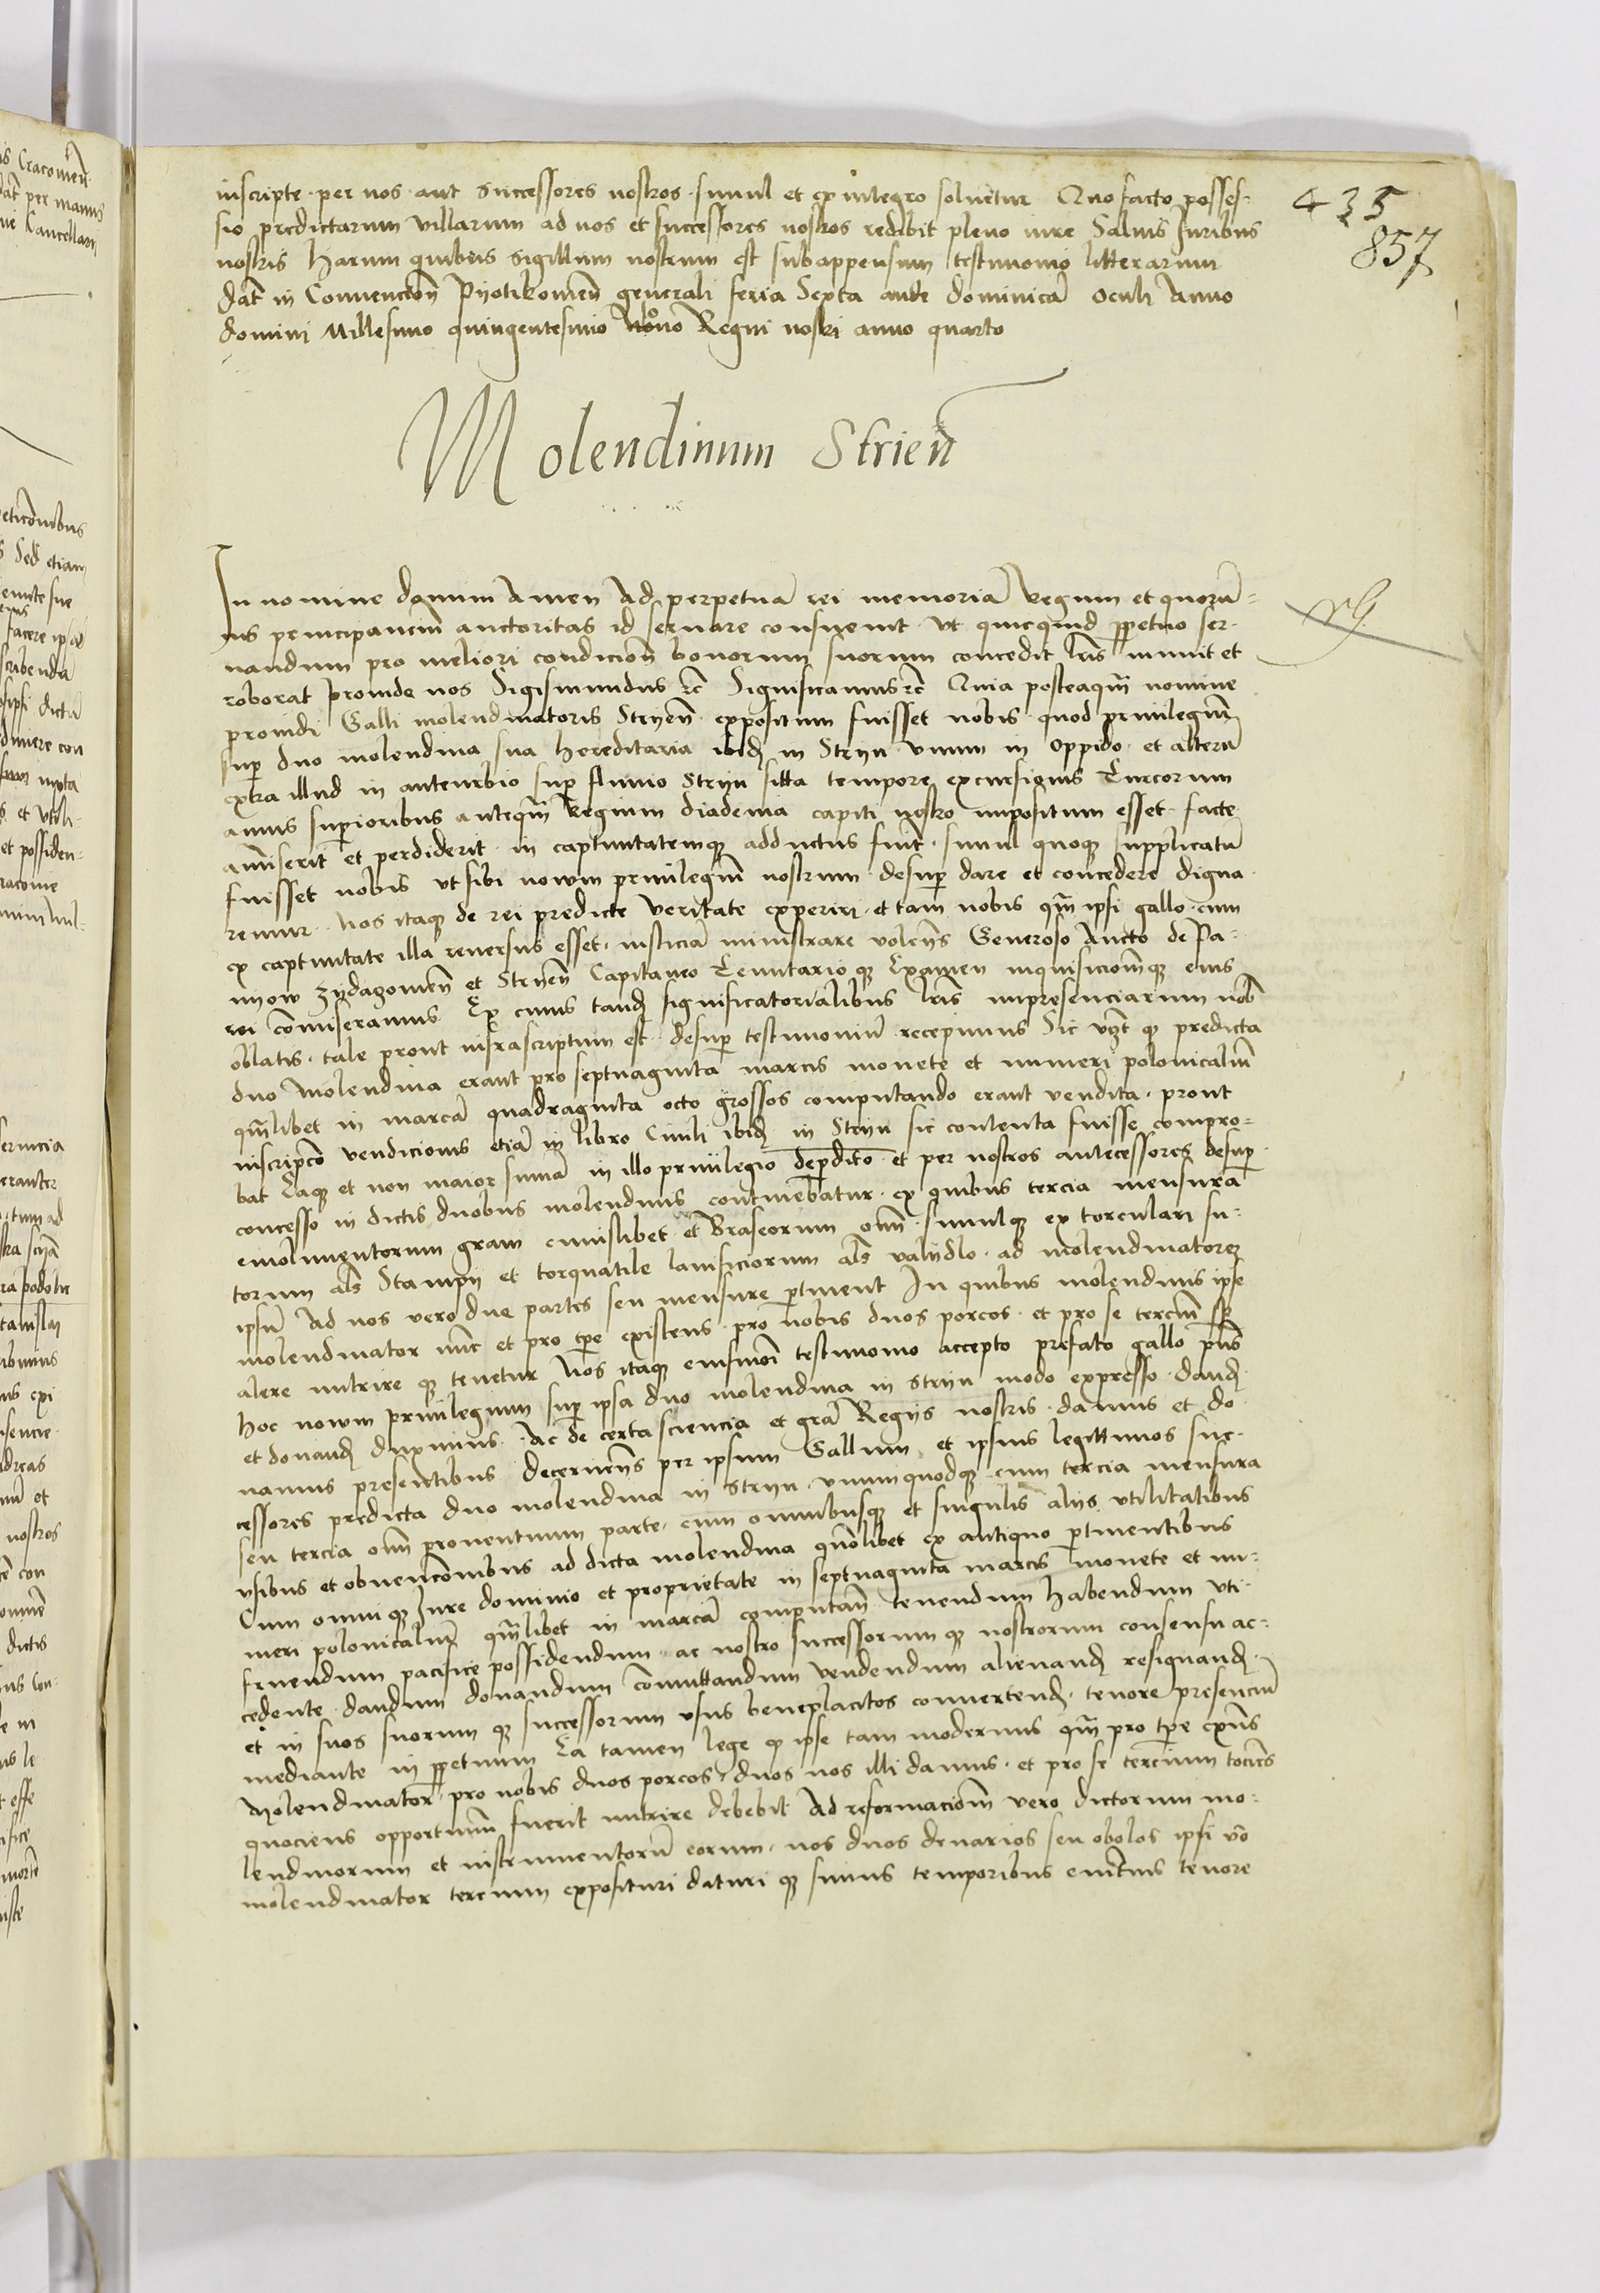 inscripte per nos aut successores nostros simul et ex integro soluetur Quo facto posses-
sio predictarum villarum ad nos et successores nostros redibit pleno iure Saluis Juribus
nostris Harum quibus sigillum nostrum est subappensum testimonio litterarum
Dat̄ in Conuencion̄ Pyotrkowien̄ generali feria Sexta ante dominicā Oculi Anno
domini Millesimo quingentesimo Regni nostri anno quarto
435
857
Molendinum Strien̄
In nomine domini Amen Ad perpetuā rei memoriā Regum et quorū-
uis principancium auctoritas id seruare consueuit vt quicquid ꝑpetuo ser-
uandum pro meliori condicion̄ bonorum suorum concedit lr̄is munit et
roborat proinde nos Sigismundus ꝛc̄ Significamus ꝛc̄ Quia posteaqm̄ nomine
prouidi Galli molendinatoris Stryen̄ expositum fuisset nobis quod priuilegiū
suꝑ duo molendina sua hereditaria ibid̄ in Stryu vnum in oppido et alterū
extra illud in anteurbio suꝑ fluuio Stryu sitta tempore excursionis Turcorum
annis suꝑioribus anteqm̄ Regium diadema capiti nostro impositum esset facte
amiserit et perdiderit in captiuitatemqꝫ adductus fuit simul quoqꝫ supplicatū
fuisset nobis vt sibi nowm priuilegiū nostrum desuꝑ dare et concedere digna
remur Nos itaqꝫ de rei predicte veritate experiri et tam nobis qm̄ ipsi gallo cum
ex captiuitate illa reuersus esset iusticiā ministrare volen̄s Generoso Aucto de Pa-
nyow Zydazowien̄ et Stryen̄ Capitaneo Tenutarioqꝫ Examen inquisicionēqꝫ eius
rei com̄iseramus Ex cuius tand̄ significatorialibus lr̄is impresenciarum nob̄
oblatis tale prout infrascriptum est desuꝑ testimoniū recepimus Sic vꝫt qꝫ predicta
duo molendina erant pro septuaginta marcis monete et numeri polonicaliū
qm̄libet in marcā quadraginta octo grossos computando erant vendita prout
inscripcō vendicionis etiā in libro Ciuili ibid̄ in Stryu sic contenta fuisse compro-
bat Eaqꝫ et non maior summā in illo priuilegio deꝑdito et per nostros antecessores desuꝑ
concesso in dictis duobus molendinis continebatur ex quibus tercia mensura
emolimentorum grani cuiuslibet et Braseorum omn̄ simulqꝫ ex torculari su-
torum al̄s Stampy et torquatile lanificiorum al̄s valydlo ad molendinatorē
ipsū Ad nos vero due partes seu mensure ꝑtinent In quibus molendinis ipse
molendinator nūc et pro tꝑe existens pro nobis duos porcos et pro se terciū
alere nutrire qꝫ tenetur Nos itaqꝫ eiusmōi testimonio accepto prefato gallo pn̄s
hoc nowm priuilegium suꝑ ipsa duo molendina in Stryu modo expresso dand̄
et donand̄ duximus Ac de certa sciencia et grā Regijs nostris damus et do
namus presentibus Decernen̄s per ipsum Gallum et ipsius legittimos suc-
cessores predicta duo molendina in Stryu vnumquodqꝫ cum tercia mensura
seu tercia omn̄ prouentuum parte cum omnibusqꝫ et singulis alijs vtilitatibus
vsibus et obuencōnibus ad dicta molendina quōlibet ex antiquo ꝑtinentibus
Cum omni qꝫ Jure dominio et proprietate in septuaginta marcis monete et nu-
meri polonicaliū qm̄libet in marcā computan̄ tenendum habendum vti-
fruendum pacifice possidendum ac nostro successorumqꝫ nostrorum consensu ac-
cedente dandum donandum com̄uttandum vendendum alienand̄ resignand̄
et in suos suorumqꝫ successorum vsus beneplacitos conuertend̄ tenore presenciū
mediante in ꝑpetuum Ea tamen lege qꝫ ipse tam modernus qm̄ pro tꝑe exn̄s
Molendinator pro nobis duos porcos duos nos illi damus et pro se tercium tociēs
quociens opportunū fuerit nutrire debebit Ad reformacionē vero dictorum mo-
lendinorum et instrumentorū eorum nos duos denarios seu obolos ipsi vō
molendinator tercium exposituri daturi qꝫ sumus temporibus euiternis tenore